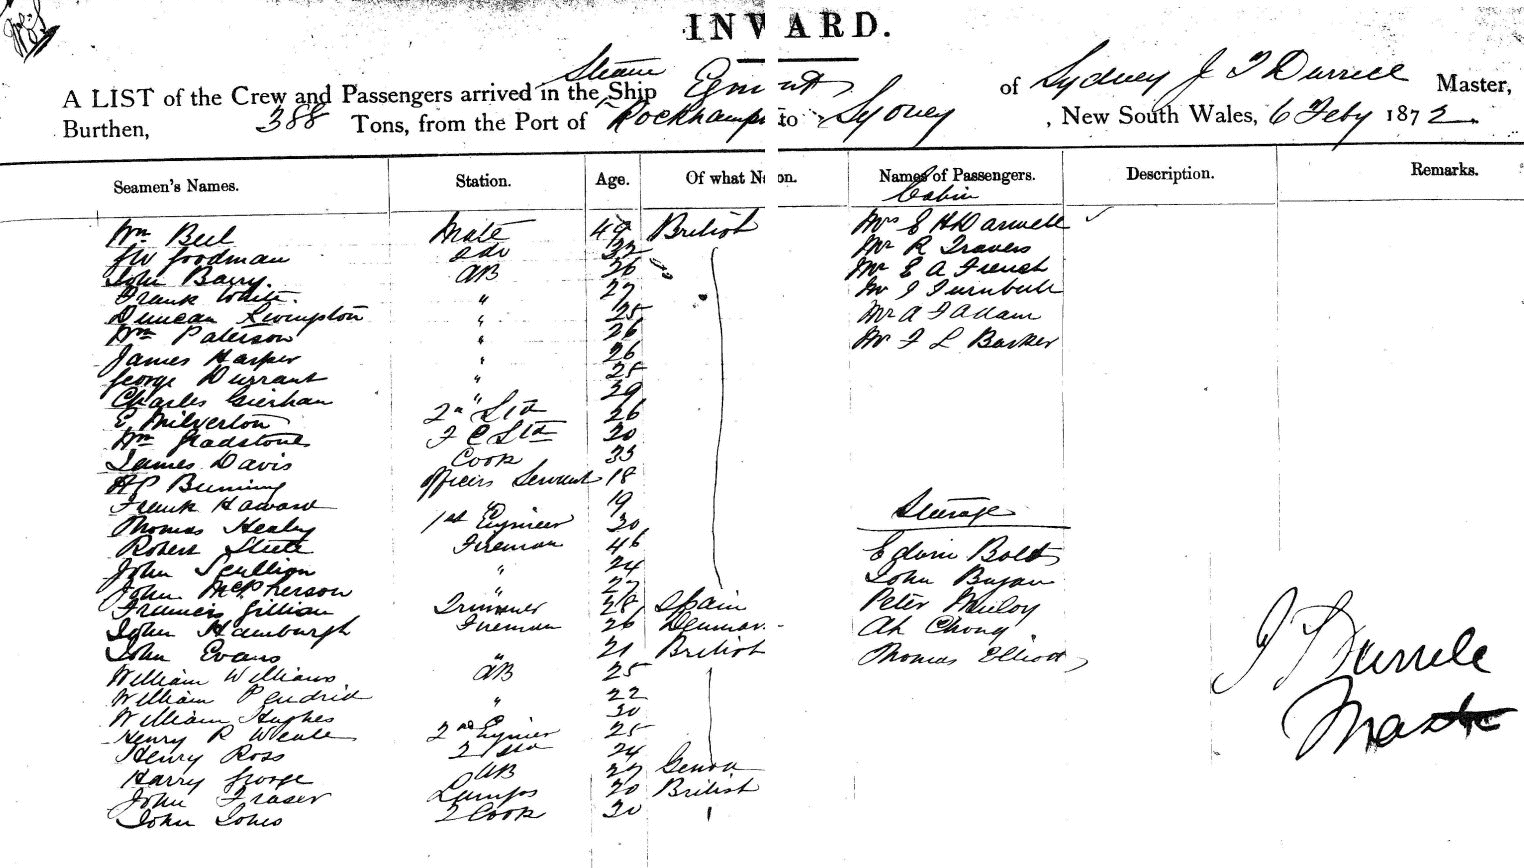 INWARD.
A LIST of the Crew and Passengers arrived in the Steam Ship Egmont of Sydney J T Durrell Master,
Burthen, 388 Tons, from the Port of Rockhampt to Sydney, New South Wales, 6 Feby 1872
Seamen's Names. Station. Age. Of what Nation. Names of Passengers. Description. Remarks.
Cabin
Wm Bell Mate 49 British Mrs E H Darvell
JW Goodman 2do 32 Mr R Travers
John Barry. AB 26 Mr E A French
Frank White. " 27 Mr J Turnbull
Duncan Livingston " 25 Mr A F Adam
Wm Paterson " 26 Mr F L Barker
James Harper " 26
George Durrant " 25
Charles " 29
E Milverton 2nd Std 26
Wm Gladstone F C Std 20
James Davis Cook 33
AP Bunning Officers Servant 18
Frank Haward " 19
Steerage
Thomas Healey 1st Engineer 30
Robert Steele Fireman 46 Edwin Bolt
John Scullion " 24 John Bryan
John McPherson " 27
Francis Gillian Trimmer 28 Spain Peter Muloy
John Hamburgh Fireman 26 Denmar Ah Chong
John Evans " 21 British Thomas Elliott
William Williams AB 25
William " 22
William Hughes " 30
Henry R Weale 2nd Engineer 25
Henry Ross 2 Std 24
Harry George AB 27 Genoa
John Fraser Lamps 20 British
John Johns 2 Cook 30
J T Durrell
Master